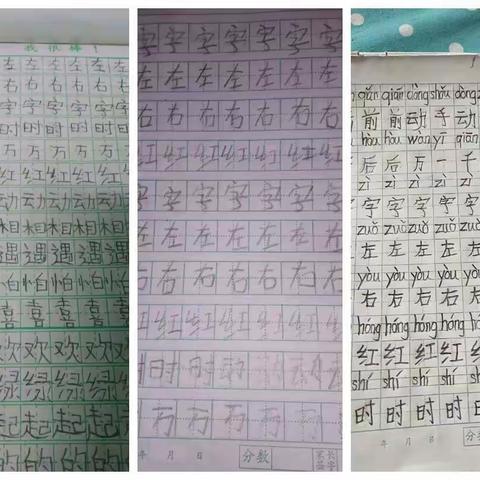 我很棒！
左左左左左
右右右右右
字字字字字
时时时时时
万万万万万
红红红红红
动动动动
相相相相
遇遇遇遇
怕怕怕怕
喜喜喜喜
欢欢欢欢
绿绿绿绿
起起起起
的的的的
字字字字字字字
左左左左左左左
右右右右右右右
红红红红红红红
字字字字字字字
左左左左左左左
右右右右右右右
红红红红红红红
时时时时时时
万万万万万万
年 月 日 分数 家长签字
qián qián dòng shǒu dòng
前前动手动
hòu hòu wàn yī qiān
后后万一千
zì zì zì zì zì
字字字字字
zuǒ zuǒ zuǒ zuǒ zuǒ
左左左左左
yòu yòu yòu yòu yòu
右右右右右
hóng hóng hóng hóng
红红红红红
shí shí shí shí
时时时时时
年 月 日 分数